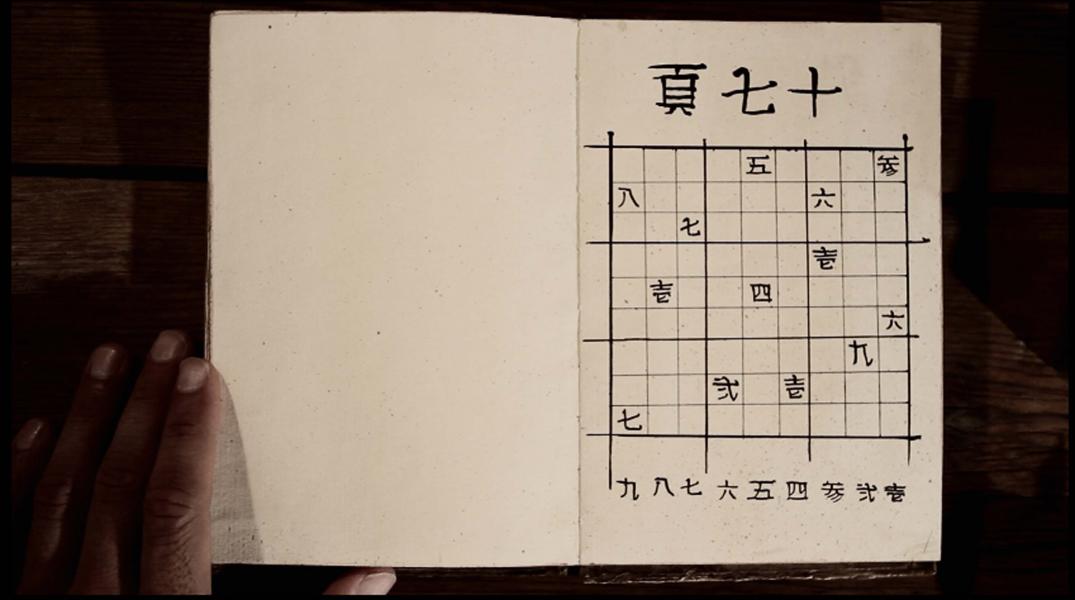 十七頁
参 五
六 八
七
壱
四 壱
六
九
壱 弐
七
壱 弐 参 四 五 六 七 八 九